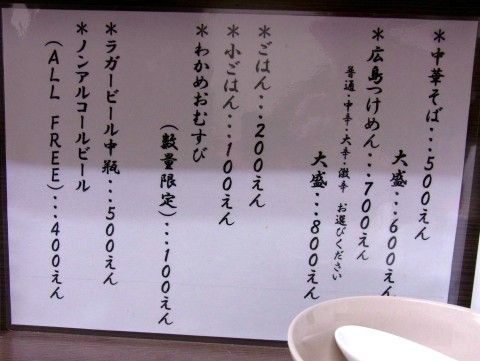 *中華そば...500えん
大盛...600えん
*広島つけめん...700えん
普通・中辛・大辛・激辛 お選びください
大盛...800えん
*ごはん...200えん
*小ごはん...100えん
*わかめおむすび
(数量限定)...100えん
*ラガービール中瓶...500えん
*ノンアルコールビール
(ALL FREE)...400えん